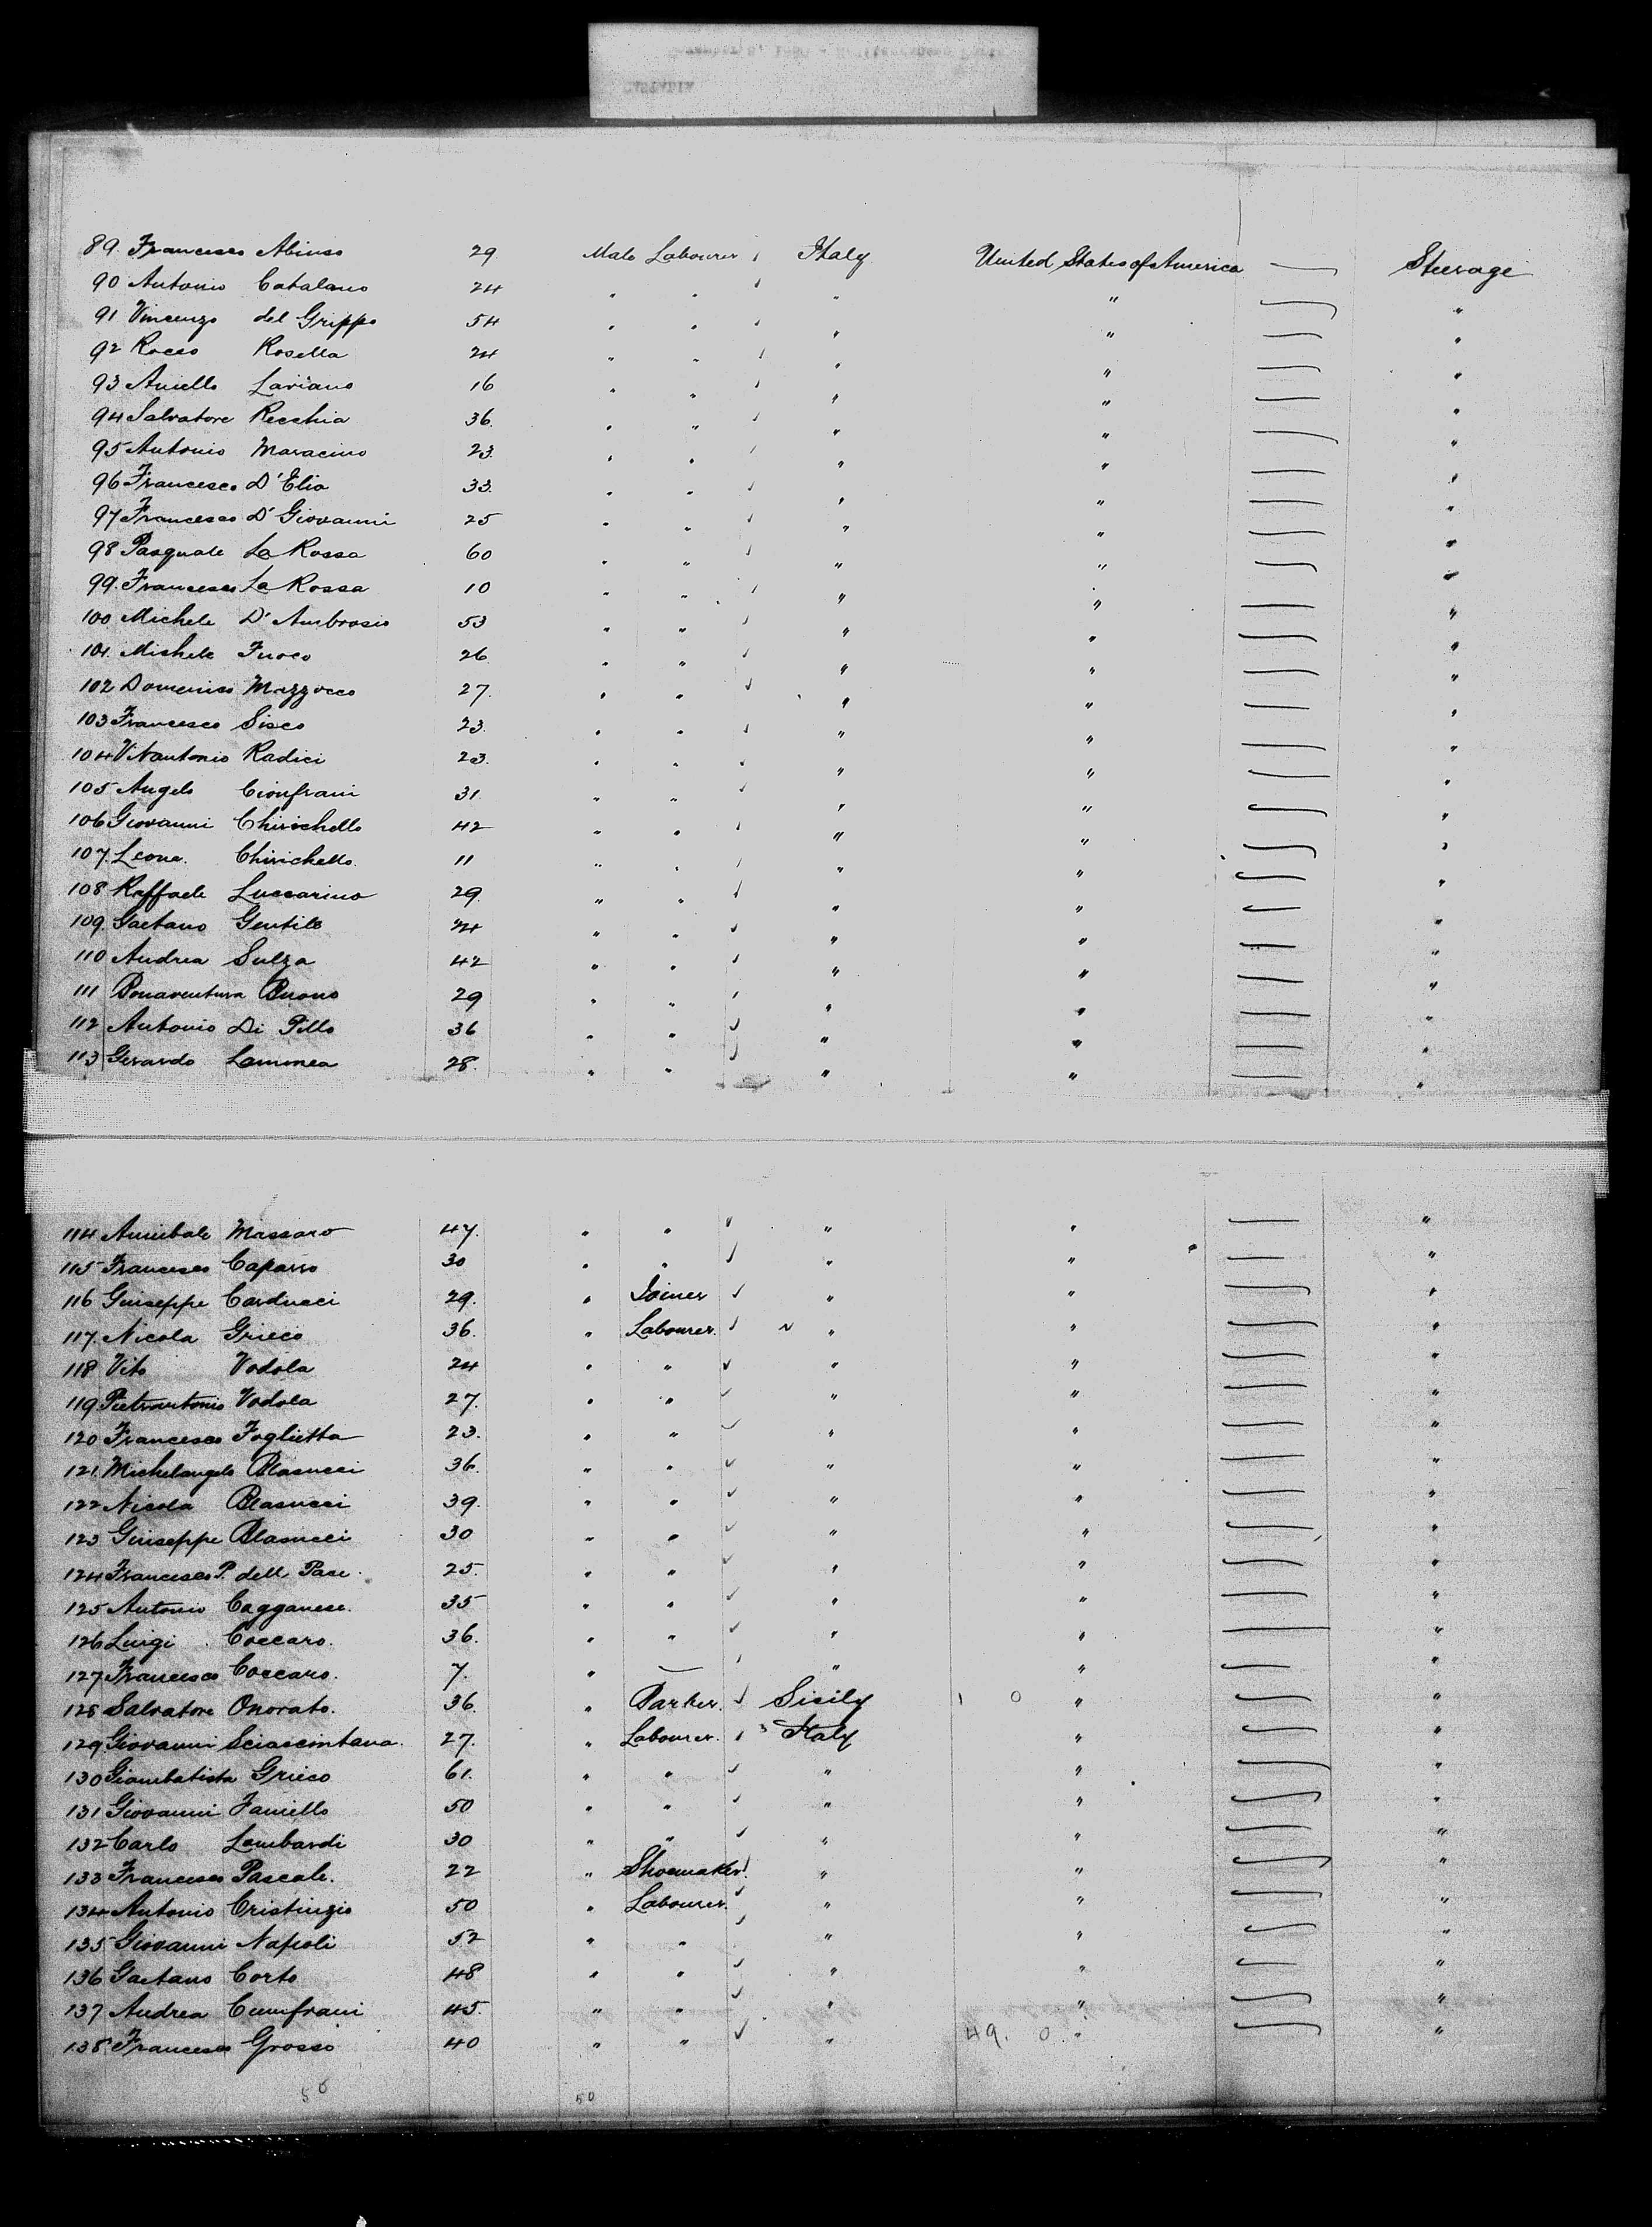 89. Francesco Abinso 29 Male Labourer Italy United States of America — Steerage
90 Antonio Catalano 24 " " " " "
91 Vincenzo del Grippo 54 " " " " "
92 Rocco Rosella 24 " " " " "
93 Aniello Laviano 16 " " " " "
94 Salvatore Recchia 36. " " " " "
95 Antonio Maracino 23. " " " " "
96 Francesco D'Elia 33. " " " " "
97 Francesco D'Giovanni 25 " " " " "
98 Pasquale La Rossa 60 " " " " "
99. Francesco La Rossa 10 " " " " "
100 Michele D'Ambrosio 53 " " " " "
101. Michele Fuoco 26. " " " " "
102 Domenico Mazzocco 27. " " " " "
103 Francesco Sisco 23. " " " " "
104 Vitantonio Radici 23. " " " " "
105 Angelo Cionfrani 31 " " " " "
106 Giovanni Chirichello 42 " " " " "
107. Leone. Chirichello. 11 " " " " "
108 Raffaele Luccarino 29. " " " " "
109. Gaetano Gentile 24 " " " " "
110 Andrea Sulza 42 " " " " "
111 Bonaventura Buono 29 " " " " "
112 Antonio Di Pillo 36 " " " " "
113 Gerardo Lammea 28. " " " " "
114 Annibale Massaro 47. " " " " "
115 Francesco Caparro 30 " " " " "
116 Giuseppe Carducci 29. " Joiner " " "
117. Nicola Grieco 36. " Labourer. " " "
118 Vito Vodola 24 " " " " "
119. Pietrantonio Vodola 27. " " " " "
120 Francesco Foglietta 23. " " " " "
121. Michelangelo Blasucci 36. " " " " "
122 Nicola Blasucci 39. " " " " "
123 Giuseppe Blasucci 30 " " " " "
124 Francesco P. dell Pace. 25. " " " " "
125 Antonio Cagganese. 35 " " " " "
126 Luigi Coccaro. 36. " " " " "
127 Francesco Coccaro. 7. " — " " "
128 Salvatore Onorato. 36. " Barber. Sicily 1 0 " "
129 Giovanni Sciascintana. 27. " Labourer. Italy " "
130 Giambatista Grieco 61. " " " " "
131 Giovanni Faniello 50 " " " " "
132 Carlo Lombardi 30 " " " " "
133 Francesco Pascale. 22 " Shoemaker. " " "
134 Antonio Cristinzio 50 " Labourer. " " "
135 Giovanni Napoli 52 " " " " "
136 Gaetano Corto 48 " " " " "
137 Andrea Cumfrani 45. " " " " "
138 Francesco Grosso 40 " " " 49. 0. " "
50 50